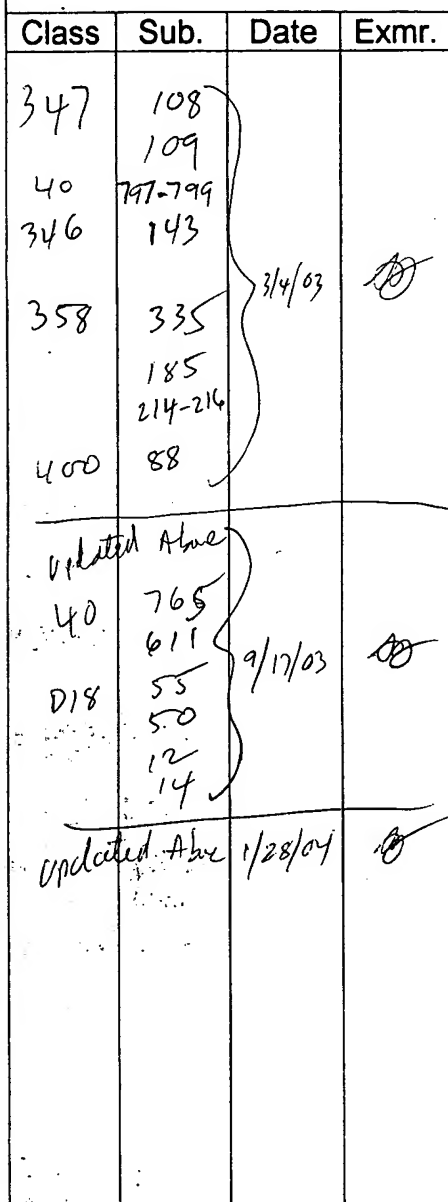 Class Sub. Date Exmr.
347 108
109
40 797-799
346 143
3/4/03
358 335
185
214-216
400 88
Updated Above
40 765
611
9/17/03
D18 55
50
12
14
Updated Above 1/28/04